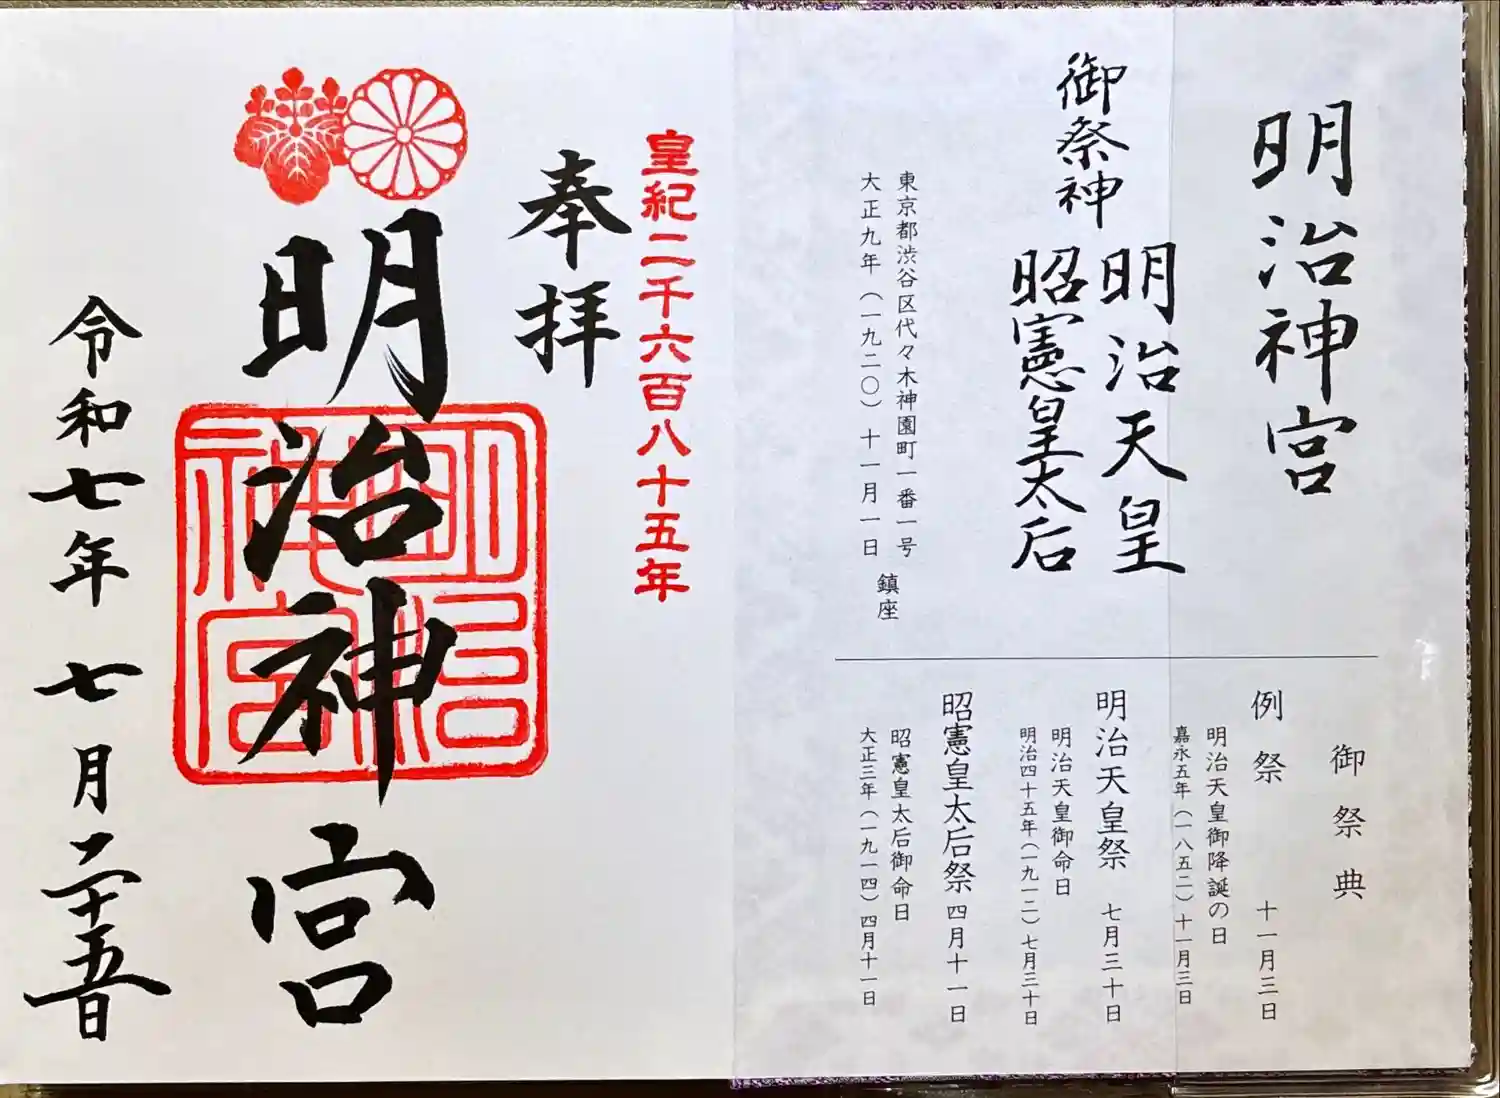 明治神宮
御祭神
明治天皇
昭憲皇太后
東京都渋谷区代々木神園町一番一号
大正九年（一九二〇）十一月一日
鎮座
御祭典
例祭 十一月三日
明治天皇御降誕の日
嘉永五年（一八五二）十一月三日
明治天皇祭 七月三十日
明治天皇御命日
明治四十五年（一九一二）七月三十日
昭憲皇太后祭 四月十一日
昭憲皇太后御命日
大正三年（一九一四）四月十一日
皇紀二千六百八十五年
奉拝
明治神宮
明治神宮
令和七年 七月二十五日